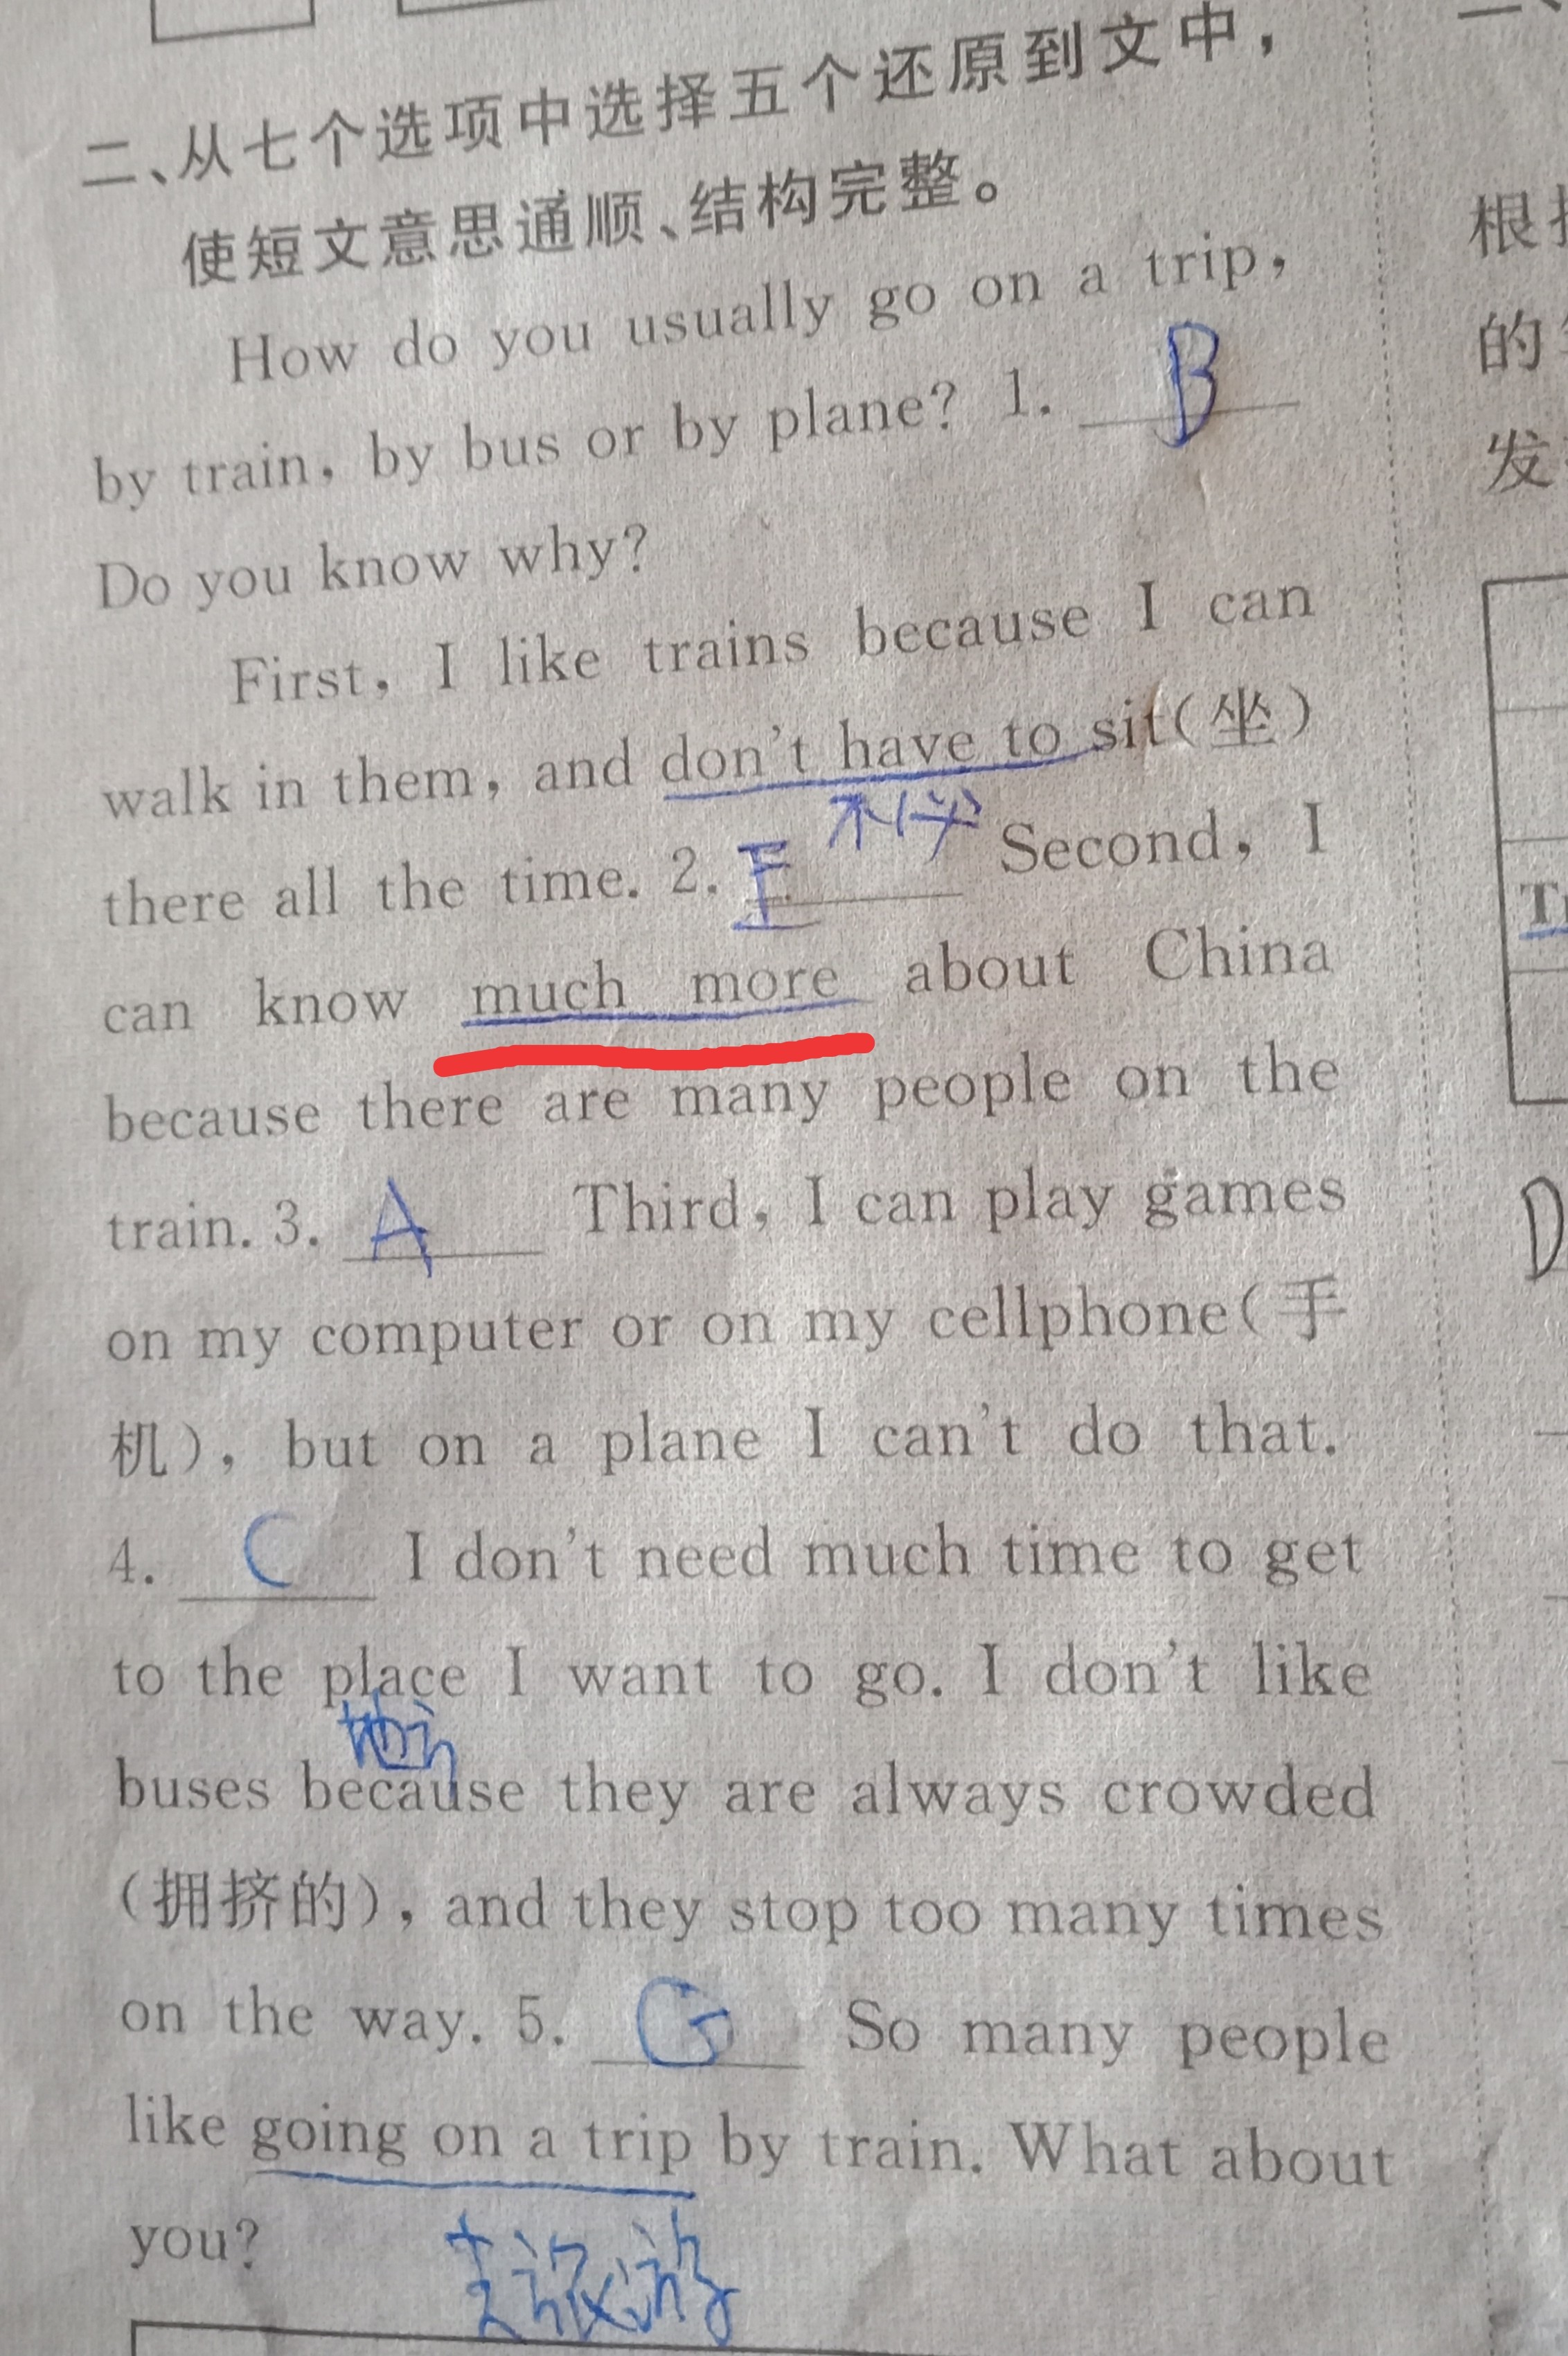 二、从七个选项中选择五个还原到文中，
使短文意思通顺、结构完整。
How do you usually go on a trip,
by train, by bus or by plane? 1. B
Do you know why?
First, I like trains because I can
walk in them, and don't have to sit(坐)
不必
there all the time. 2. E Second, I
can know much more about China
because there are many people on the
train. 3. A Third, I can play games
on my computer or on my cellphone(手
机), but on a plane I can't do that.
4. C I don't need much time to get
to the place I want to go. I don't like
地方
buses because they are always crowded
(拥挤的), and they stop too many times
on the way. 5. G So many people
like going on a trip by train. What about
you?
去旅游
根
的
发
T
D